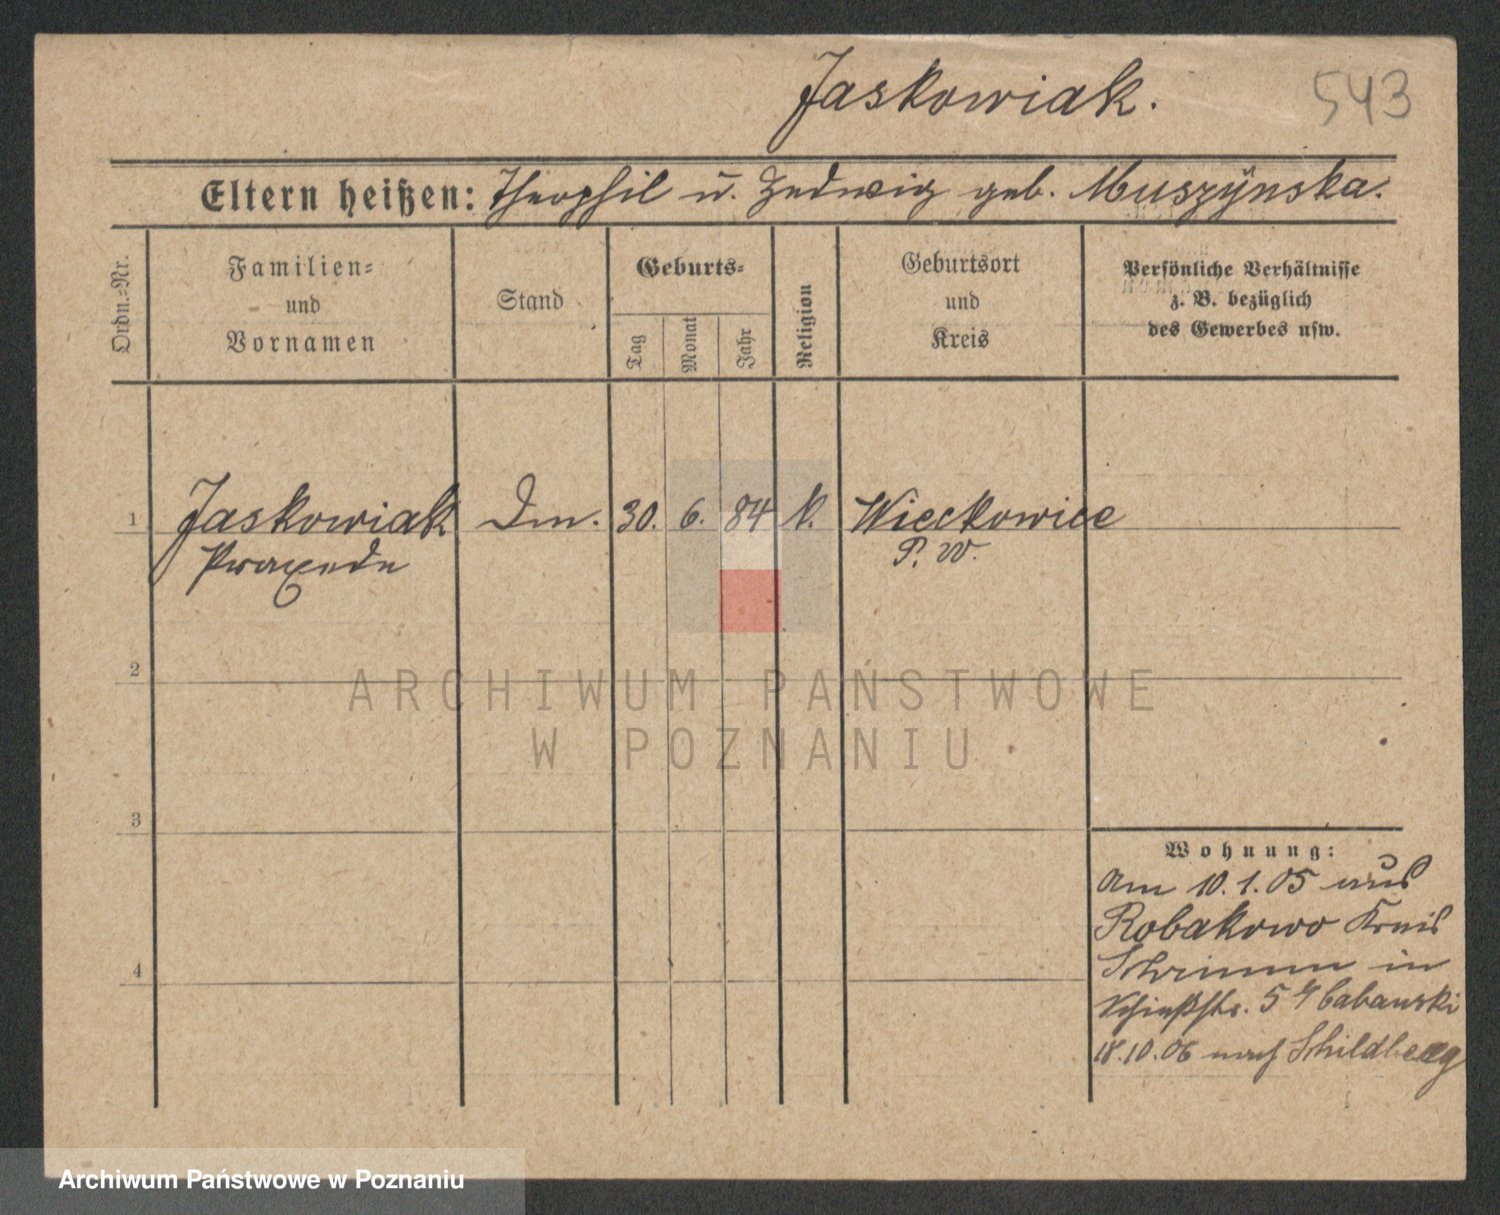 Jaskowiak.
543
Eltern heißen: Theophil u. Hedwig geb. Muszÿnska.
Ordn.=Nr.
Familien=
und
Vornamen
Stand
Geburts=
Tag
Monat
Jahr
Religion
Geburtsort
und
Kreis
Persönliche Verhältnisse
z. B. bezüglich
des Gewerbes usw.
1 Jaskowiak Dm. 30. 6. 84 k. Wieckowice
Praxede P. W.
2
ARCHIWUM PAŃSTWOWE
W POZNANIU
3
Wohnung:
Am 10.1.05 aus
Robakowo Kreis
4
Schrimm in
Schießstr. 5
18.10.06 nach Schildberg
Archiwum Państwowe w Poznaniu